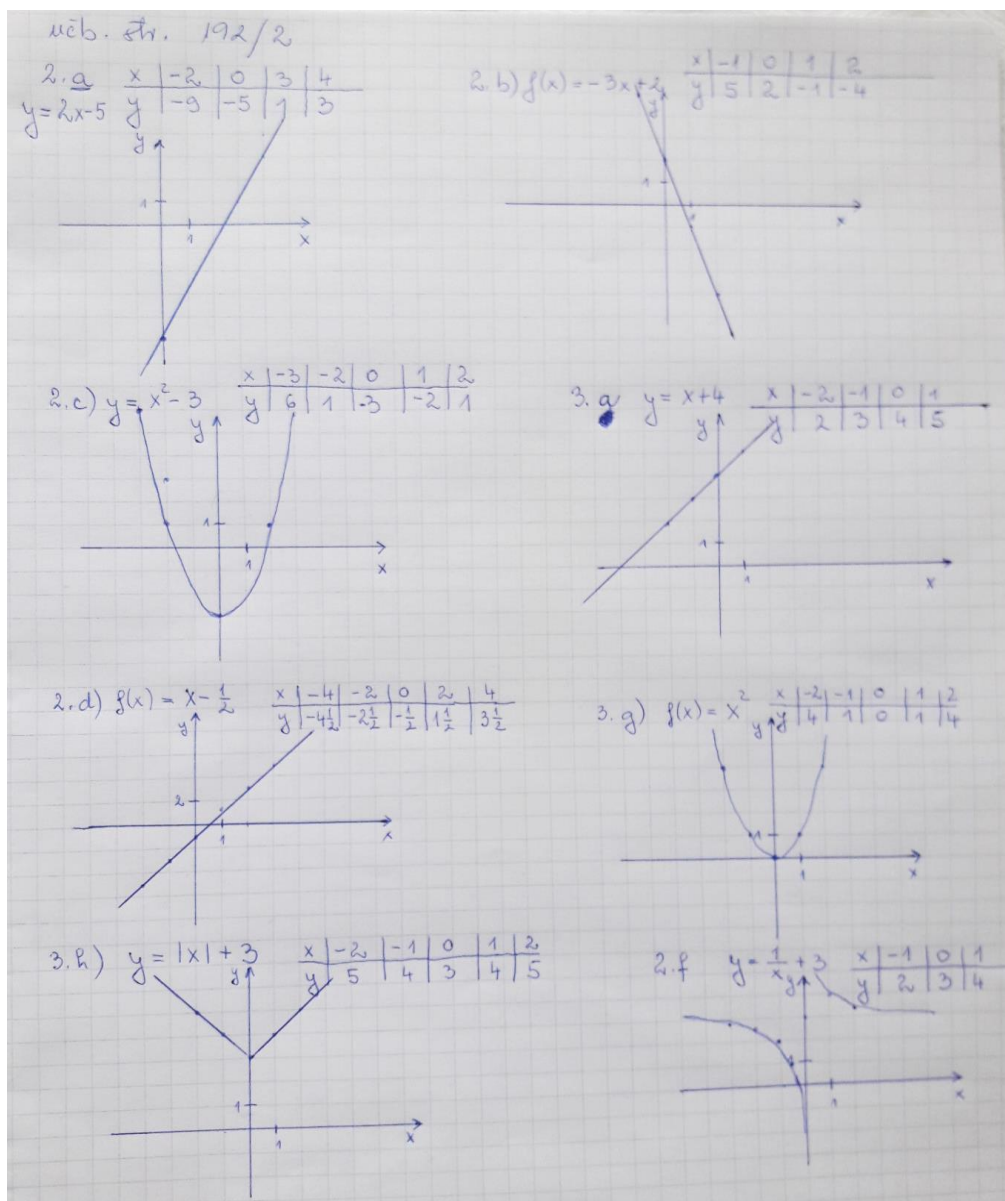 učb. str. 192/2
2. a x | -2 | 0 | 3 | 4
y=2x-5 y | -9 | -5 | 1 | 3
y
1
1
x
2. b) f(x) = -3x+2 x | -1 | 0 | 1 | 2
y | 5 | 2 | -1 | -4
y
1
1
x
2. c) y = x² - 3 x | -3 | -2 | 0 | 1 | 2
y | 6 | 1 | -3 | -2 | 1
y
1
1
x
3. a y = x+4 x | -2 | -1 | 0 | 1
y | 2 | 3 | 4 | 5
y
1
1
x
2. d) f(x) = x - 1/2 x | -4 | -2 | 0 | 2 | 4
y | -4 1/2 | -2 1/2 | -1/2 | 1 1/2 | 3 1/2
y
2
1
x
3. g) f(x) = x² x | -2 | -1 | 0 | 1 | 2
y | 4 | 1 | 0 | 1 | 4
y
1
1
x
3. h) y = |x| + 3 x | -2 | -1 | 0 | 1 | 2
y | 5 | 4 | 3 | 4 | 5
y
1
1
x
2. f y = 1/x + 3 x | -1 | 0 | 1
y | 2 | 3 | 4
y
1
1
x